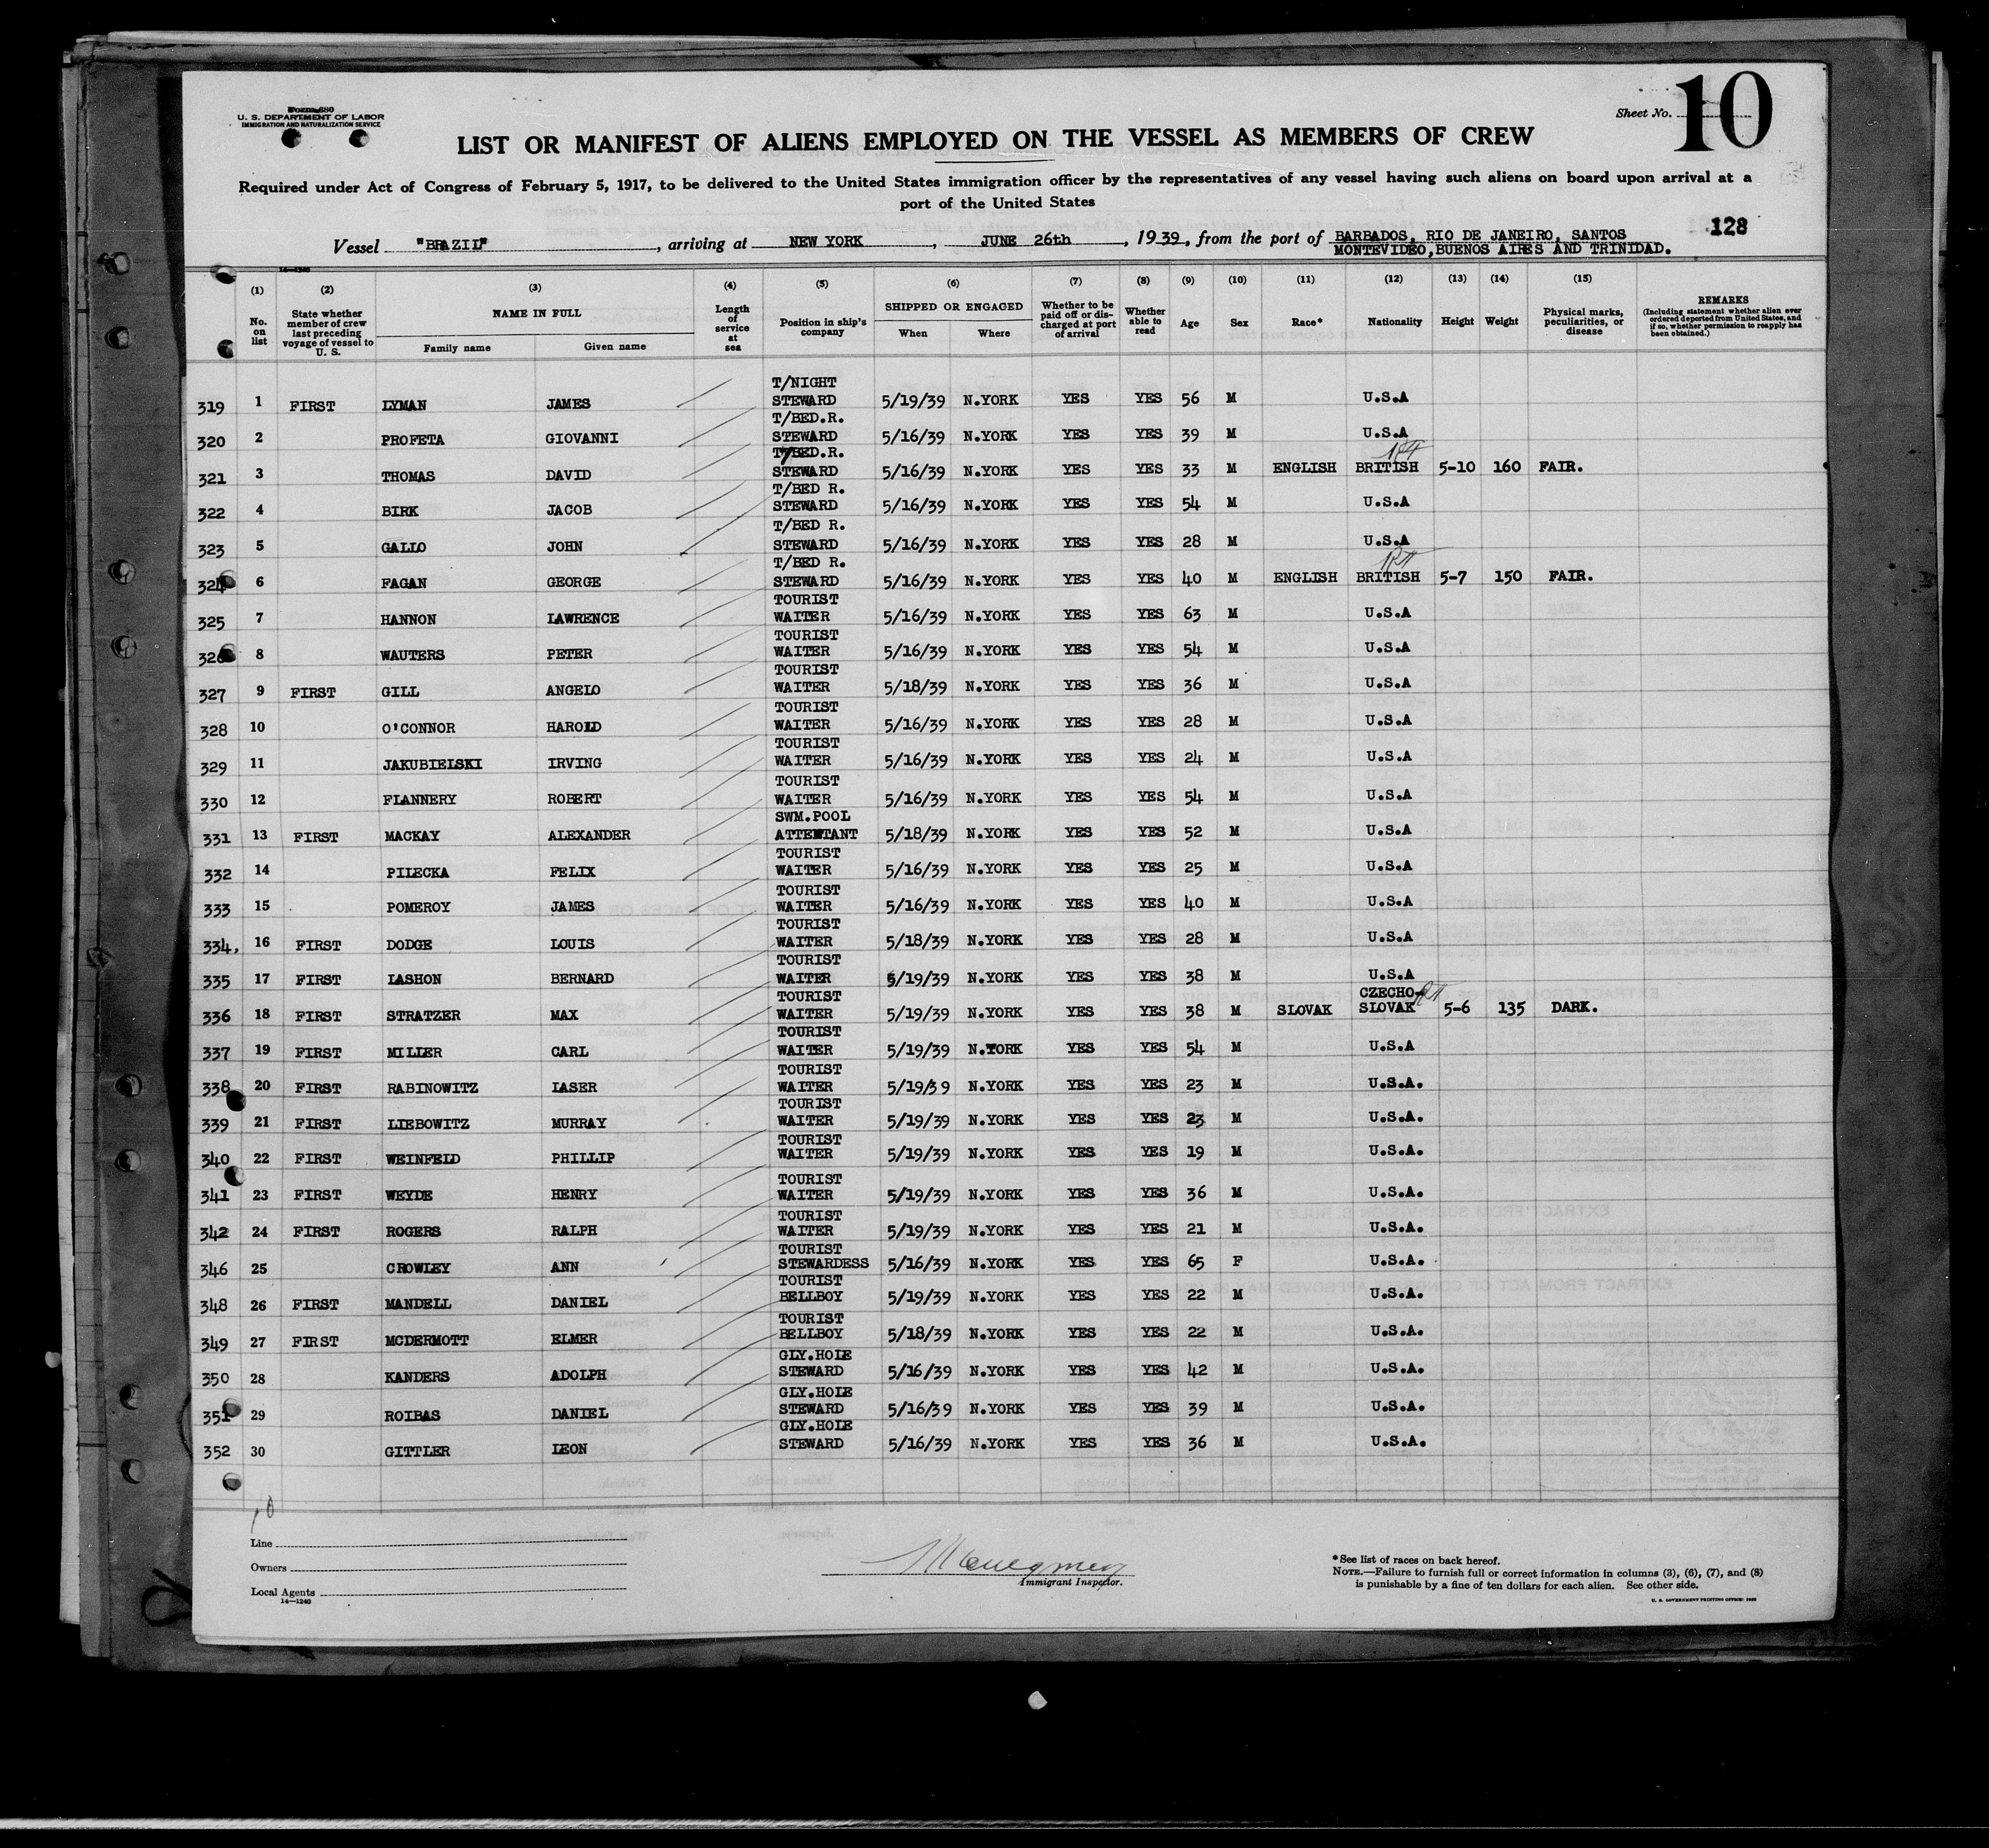 Form 680
U. S. DEPARTMENT OF LABOR
IMMIGRATION AND NATURALIZATION SERVICE
Sheet No. 10
LIST OR MANIFEST OF ALIENS EMPLOYED ON THE VESSEL AS MEMBERS OF CREW
Required under Act of Congress of February 5, 1917, to be delivered to the United States immigration officer by the representatives of any vessel having such aliens on board upon arrival at a
port of the United States
128
Vessel "BRAZIL", arriving at NEW YORK, JUNE 26th, 1939, from the port of BARBADOS, RIO DE JANEIRO, SANTOS
MONTEVIDEO, BUENOS AIRES AND TRINIDAD.
14—1240
(1) No. on list (2) State whether member of crew last preceding voyage of vessel to U. S. (3) NAME IN FULL Family name Given name (4) Length of service at sea (5) Position in ship's company (6) SHIPPED OR ENGAGED When Where (7) Whether to be paid off or discharged at port of arrival (8) Whether able to read (9) Age (10) Sex (11) Race* (12) Nationality (13) Height (14) Weight (15) Physical marks, peculiarities, or disease REMARKS (Including statement whether alien ever ordered deported from United States, and if so, whether permission to reapply has been obtained.)
319 1 FIRST LYMAN JAMES T/NIGHT STEWARD 5/19/39 N.YORK YES YES 56 M U.S.A
320 2 PROFETA GIOVANNI T/BED.R. STEWARD 5/16/39 N.YORK YES YES 39 M U.S.A
321 3 THOMAS DAVID T/BED.R. STEWARD 5/16/39 N.YORK YES YES 33 M ENGLISH BRITISH 5-10 160 FAIR.
322 4 BIRK JACOB T/BED R. STEWARD 5/16/39 N.YORK YES YES 54 M U.S.A
323 5 GALLO JOHN T/BED R. STEWARD 5/16/39 N.YORK YES YES 28 M U.S.A
324 6 FAGAN GEORGE T/BED R. STEWARD 5/16/39 N.YORK YES YES 40 M ENGLISH BRITISH 5-7 150 FAIR.
325 7 HANNON LAWRENCE TOURIST WAITER 5/16/39 N.YORK YES YES 63 M U.S.A
326 8 WAUTERS PETER TOURIST WAITER 5/16/39 N.YORK YES YES 54 M U.S.A
327 9 FIRST GILL ANGELO TOURIST WAITER 5/18/39 N.YORK YES YES 36 M U.S.A
328 10 O'CONNOR HAROLD TOURIST WAITER 5/16/39 N.YORK YES YES 28 M U.S.A
329 11 JAKUBIELSKI IRVING TOURIST WAITER 5/16/39 N.YORK YES YES 24 M U.S.A
330 12 FLANNERY ROBERT TOURIST WAITER 5/16/39 N.YORK YES YES 54 M U.S.A
331 13 FIRST MACKAY ALEXANDER SWM.POOL ATTENTANT 5/18/39 N.YORK YES YES 52 M U.S.A
332 14 PILECKA FELIX TOURIST WAITER 5/16/39 N.YORK YES YES 25 M U.S.A
333 15 POMEROY JAMES TOURIST WAITER 5/16/39 N.YORK YES YES 40 M U.S.A
334, 16 FIRST DODGE LOUIS TOURIST WAITER 5/18/39 N.YORK YES YES 28 M U.S.A
335 17 FIRST LASHON BERNARD TOURIST WAITER 5/19/39 N.YORK YES YES 38 M U.S.A
336 18 FIRST STRATZER MAX TOURIST WAITER 5/19/39 N.YORK YES YES 38 M SLOVAK CZECHO-SLOVAK 5-6 135 DARK.
337 19 FIRST MILLER CARL TOURIST WAITER 5/19/39 N.YORK YES YES 54 M U.S.A
338 20 FIRST RABINOWITZ LASER TOURIST WAITER 5/19/39 N.YORK YES YES 23 M U.S.A.
339 21 FIRST LIEBOWITZ MURRAY TOURIST WAITER 5/19/39 N.YORK YES YES 23 M U.S.A.
340 22 FIRST WEINFELD PHILLIP TOURIST WAITER 5/19/39 N.YORK YES YES 19 M U.S.A.
341 23 FIRST WEYDE HENRY TOURIST WAITER 5/19/39 N.YORK YES YES 36 M U.S.A.
342 24 FIRST ROGERS RALPH TOURIST WAITER 5/19/39 N.YORK YES YES 21 M U.S.A.
346 25 CROWLEY ANN TOURIST STEWARDESS 5/16/39 N.YORK YES YES 65 F U.S.A.
348 26 FIRST MANDELL DANIEL TOURIST BELLBOY 5/19/39 N.YORK YES YES 22 M U.S.A.
349 27 FIRST MCDERMOTT ELMER TOURIST BELLBOY 5/18/39 N.YORK YES YES 22 M U.S.A.
350 28 KANDERS ADOLPH GLY.HOLE STEWARD 5/16/39 N.YORK YES YES 42 M U.S.A.
351 29 ROIBAS DANIEL GLY.HOLE STEWARD 5/16/39 N.YORK YES YES 39 M U.S.A.
352 30 GITTLER LEON GLY.HOLE STEWARD 5/16/39 N.YORK YES YES 36 M U.S.A.
10
Line
Owners
Local Agents
14—1240
Immigrant Inspector.
*See list of races on back hereof.
NOTE.—Failure to furnish full or correct information in columns (3), (6), (7), and (8)
is punishable by a fine of ten dollars for each alien. See other side.
U. S. GOVERNMENT PRINTING OFFICE